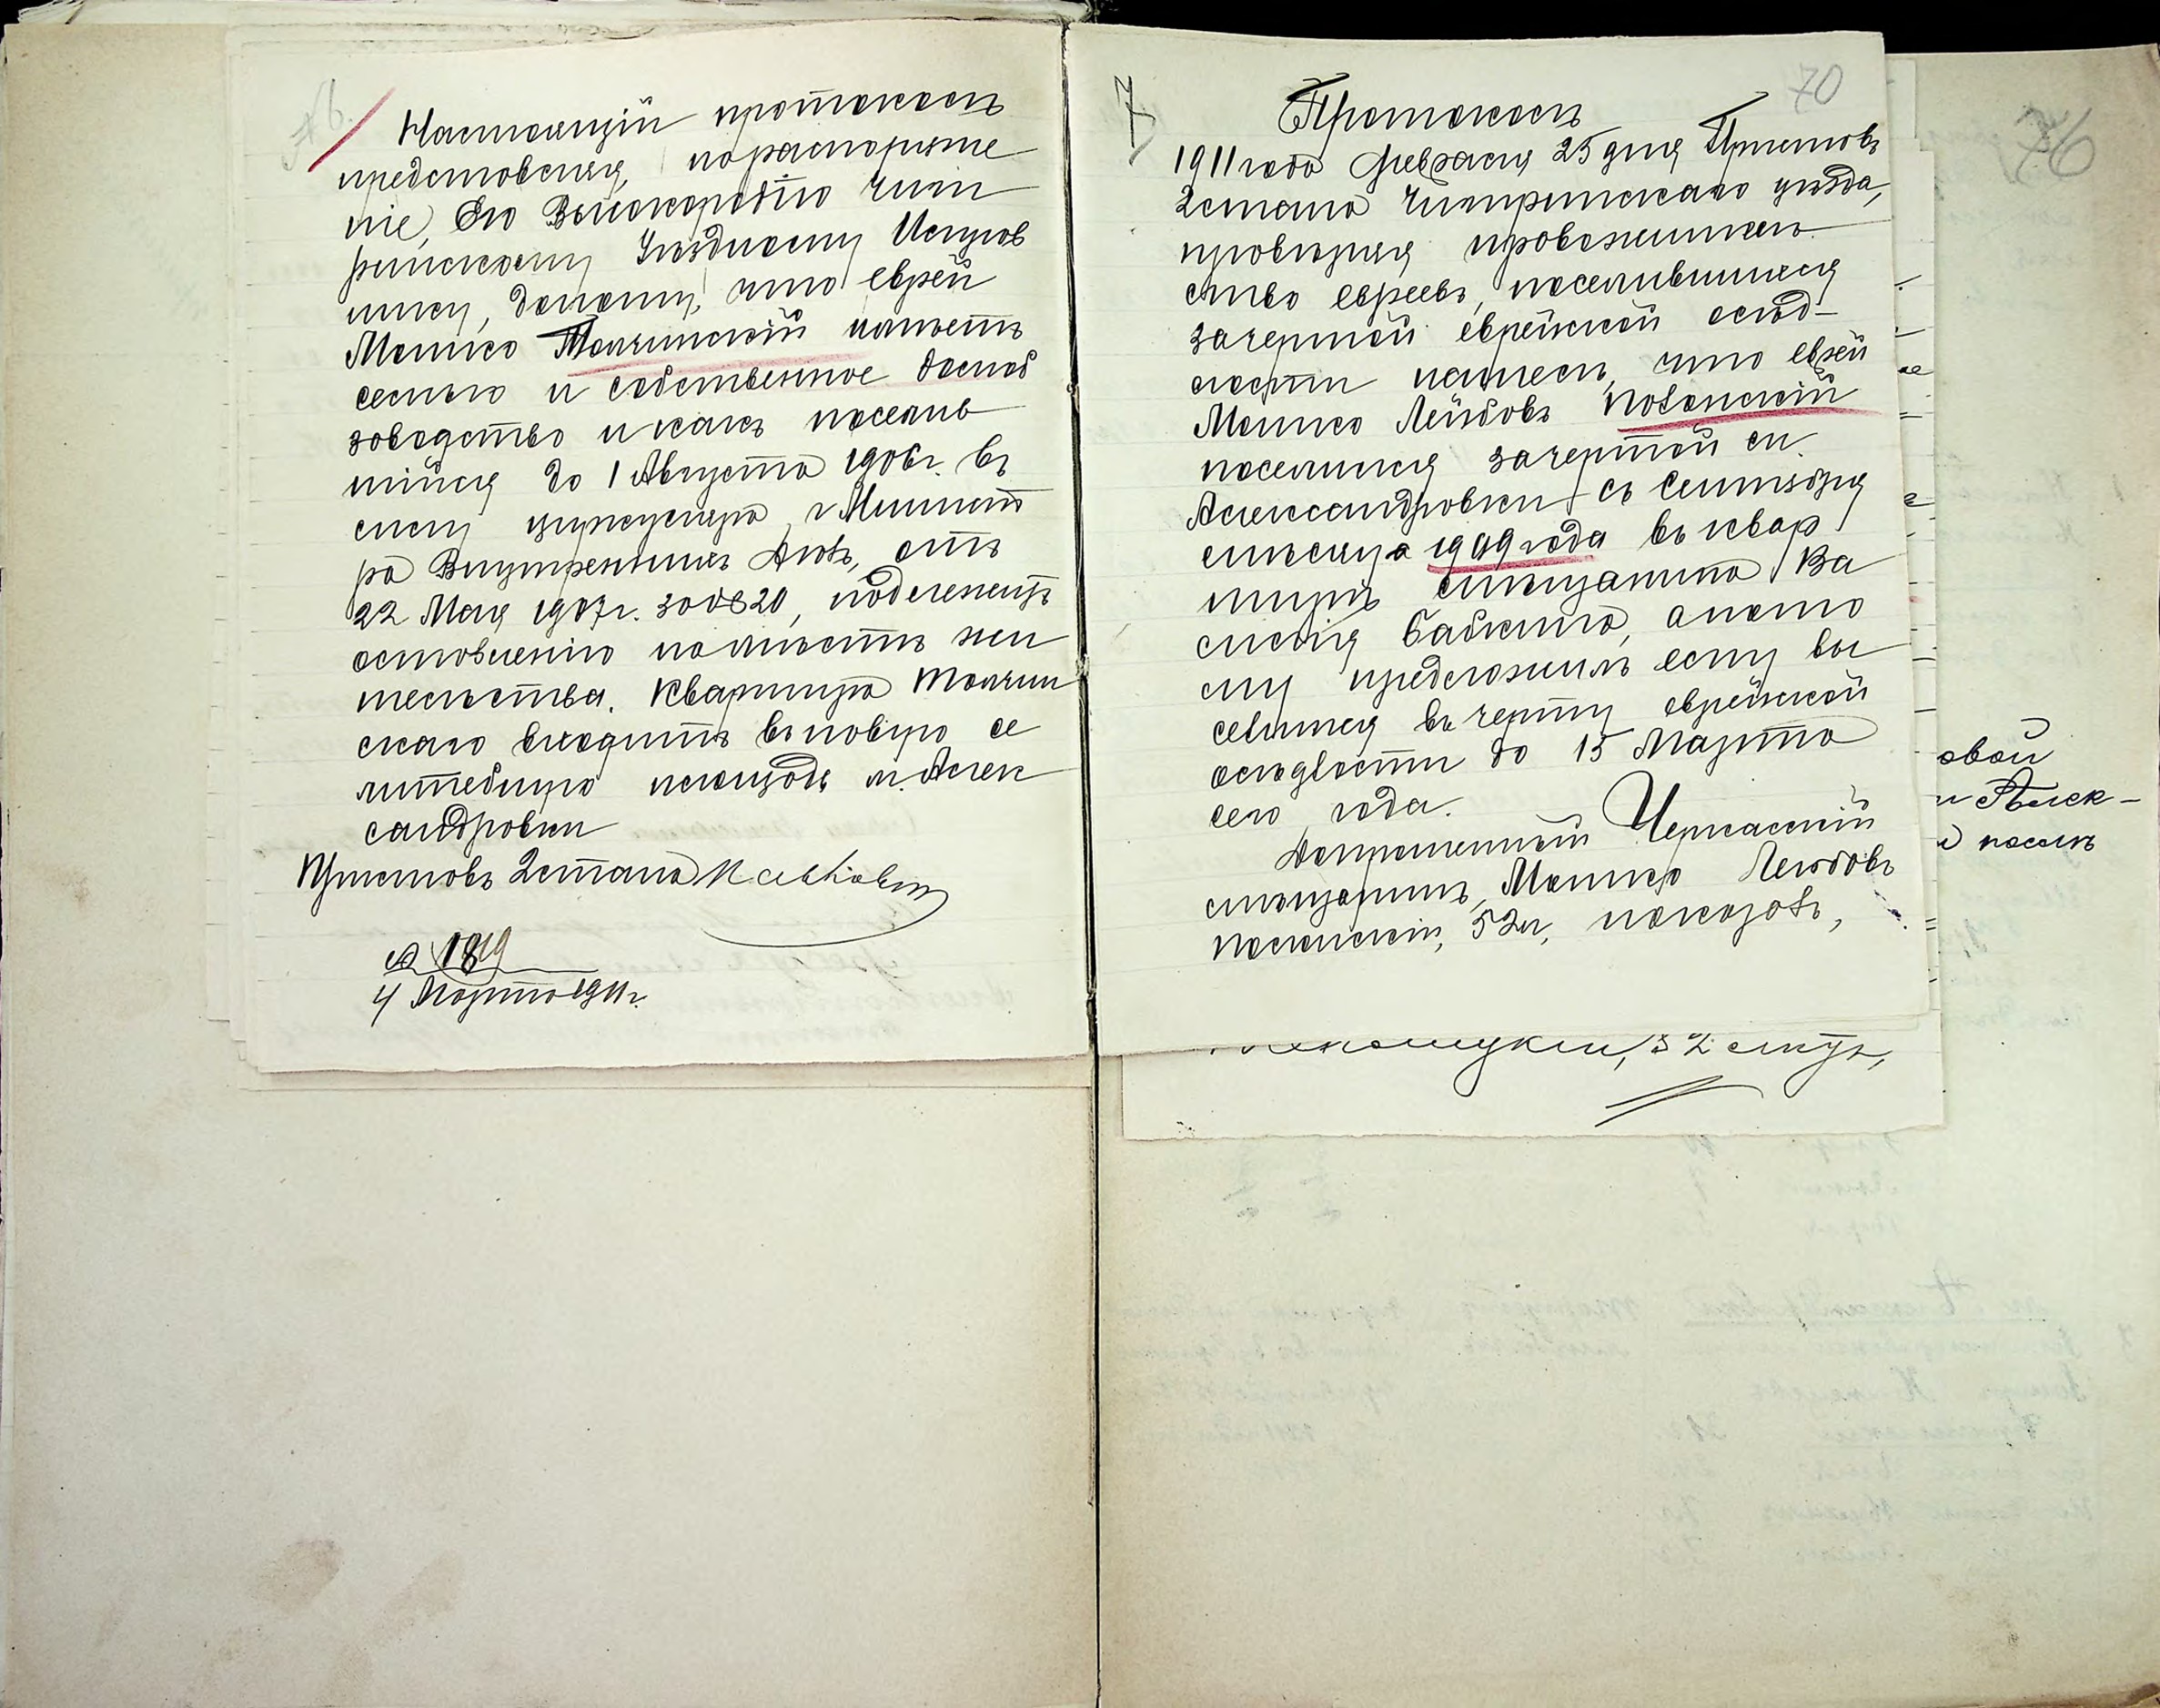 Настоящій протоколъ
представляя, по распоряже
нію, Его Высокородію Чиги
ринскому Уѣздному Исправ
нику, доношу, что еврей
Мошко Толчинскій имѣетъ
семью и собственное домооб
заводство и какъ поселив
шійся до 1 Августа 1906 г. въ
силу циркуляра г Министт
ра Внутреннихъ Дѣлъ, отъ
22 Мая 1907 г. за № 20, подлежитъ
оставленію на мѣстѣ жи
тельства. Квартира Толчин
скаго входитъ въ новую се
литебную площадь м. Алек
сандровки
Приставъ 2 стана
№ 1819
4 Марта 1911 г.
7
70
Протоколъ
1911 года Февраля 25 дня Приставъ
2 стана Чигиринскаго уѣзда,
провѣряя правожитель
ство евреевъ, поселившихся
за чертой еврейской осѣд-
лости нашелъ, что еврей
Мошко Лейбовъ
поселился за чертой м.
Александровки съ Сентября
мѣсяца 1909 года въ квар
тирѣ мѣщанина Ва
силія Бабкина, а пото
му предложилъ ему вы
селится въ черту еврейской
осѣдлости до 15 Марта
сего года.
Допрошенный Черкасскій
мѣщанинъ, Мошко Леибовъ
52 л, показалъ,
32 лтъ,
76
овой
Алек-
посел